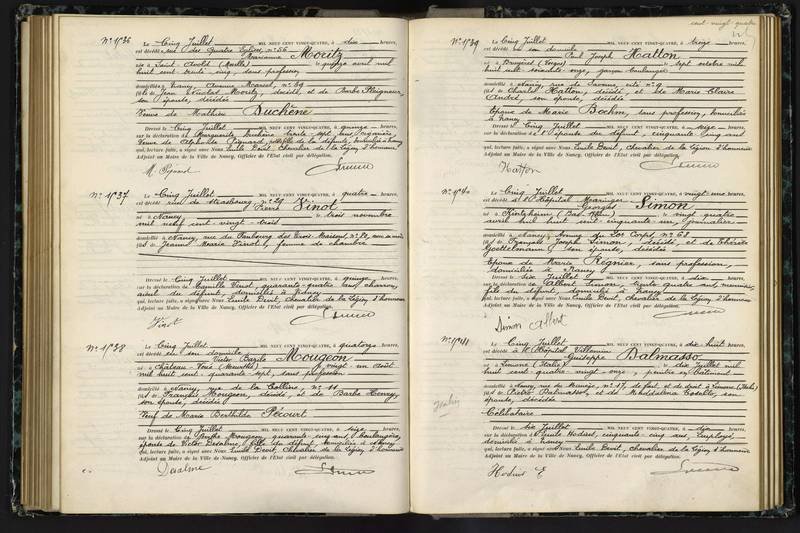 N° 1736
Le Cinq Juillet MIL NEUF CENT VINGT-QUATRE, à dix heures,
est décédé rue des Quatre Eglises, n° 56
Marianne Moritz
née à Saint-Avold (Moselle) le quinze avril mil
huit cent trente cinq, sans profession
domiciliée à Nancy, Avenue
fille de Jean Nicolas Moritz, décédé, et de Barbe
son épouse, décédée
Veuve de Mathieu Duchêne
Dressé le Cinq Juillet MIL NEUF CENT VINGT-QUATRE, à quinze heures,
sur la déclaration de Marguerite trente sept ans
Veuve de Alphonse Pignard, fille de la défunte, domiciliée à Nancy
qui, lecture faite, a signé avec Nous Emile Devit, Chevalier de la Légion d'honneur
Adjoint au Maire de la Ville de Nancy, Officier de l'Etat civil par délégation.
M. Pignard
N° 1737
Le Cinq Juillet MIL NEUF CENT VINGT-QUATRE, à quatre heures,
est décédé rue de Strasbourg n° 29
Pierre Vinot
né à Nancy le trois novembre
mil neuf cent vingt-trois
domicilié à Nancy, rue du Faubourg des Trois Maisons, n°
fils de Jeanne Marie Vinot, femme de chambre
Dressé le Cinq Juillet MIL NEUF CENT VINGT-QUATRE, à quinze heures,
sur la déclaration de Camille Vinot, quarante-quatre ans, charron,
aïeul du défunt, domicilié à Nancy
qui, lecture faite, a signé avec Nous Emile Devit, Chevalier de la Légion d'honneur
Adjoint au Maire de la Ville de Nancy, Officier de l'Etat civil par délégation.
Vinot
N° 1738
Le Cinq Juillet MIL NEUF CENT VINGT-QUATRE, à quatorze heures,
est décédé en son domicile
Victor Basile Mougeon
né à Château-Voué (Meurthe) le vingt un août
mil huit cent quarante sept, sans profession
domicilié à Nancy, rue de la Colline, n° 11
fils de François Mougeon, décédé, et de Barbe Henry,
son épouse, décédée
Veuf de Marie Berthilde Pécourt
Dressé le Cinq Juillet MIL NEUF CENT VINGT-QUATRE, à seize heures,
sur la déclaration de Berthe Mougeon, quarante-cinq ans, boulangère,
épouse de Victor fille du défunt, domiciliée à Nancy
qui, lecture faite, a signé avec Nous Emile Devit, Chevalier de la Légion d'honneur
Adjoint au Maire de la Ville de Nancy, Officier de l'Etat civil par délégation.
cent vingt quatre
N° 1739
Le Cinq Juillet MIL NEUF CENT VINGT-QUATRE, à treize heures,
est décédé en son domicile
Paul Joseph Hatton
né à Bruyères (Vosges) le sept octobre mil
huit cent soixante onze, garçon boulanger
domicilié à Nancy, rue de n° 9
fils de Charles Hatton, décédé, et de Marie Claire
André, son épouse, décédée
Epoux de Marie Boehm, sans profession, domiciliée
à Nancy
Dressé le Cinq Juillet MIL NEUF CENT VINGT-QUATRE, à seize heures,
sur la déclaration de l'épouse du défunt, cinquante-cinq ans
qui, lecture faite, a signé avec Nous Emile Devit, Chevalier de la Légion d'honneur
Adjoint au Maire de la Ville de Nancy, Officier de l'Etat civil par délégation.
Hatton
N° 1740
Le Cinq Juillet MIL NEUF CENT VINGT-QUATRE, à vingt-une heures,
est décédé à l'Hôpital
Georges Simon
né à Kintzheim (Bas-Rhin) le vingt quatre
avril mil huit cent cinquante-un, journalier
domicilié à Nancy, Avenue du 20e Corps, n° 63
fils de François Joseph Simon, décédé, et de Thérèse
son épouse, décédée
Epoux de Marie Régnier, sans profession,
domiciliée à Nancy
Dressé le Six Juillet MIL NEUF CENT VINGT-QUATRE, à dix heures,
sur la déclaration de Albert Simon, trente quatre ans, menuisier,
fils du défunt, domicilié à Nancy
qui, lecture faite, a signé avec Nous Emile Devit, Chevalier de la Légion d'honneur
Adjoint au Maire de la Ville de Nancy, Officier de l'Etat civil par délégation.
Simon Albert
N° 1741
Le Cinq Juillet MIL NEUF CENT VINGT-QUATRE, à dix huit heures,
est décédé à l'Hôpital Villemin
Giuseppe Balmasso
né à Limone (Italie) le dix Juillet mil
huit cent quatre-vingt-onze, peintre en bâtiments
domicilié à Nancy, rue n° 17, de fait, et de droit à Limone (Italie)
fils de Pietro Balmasso, et de Maddalena Tosello, son
épouse, décédés
Célibataire
Dressé le Six Juillet MIL NEUF CENT VINGT-QUATRE, à dix heures,
sur la déclaration de Emile Hodier, cinquante-cinq ans, employé,
domicilié à Nancy
qui, lecture faite, a signé avec Nous Emile Devit, Chevalier de la Légion d'honneur
Adjoint au Maire de la Ville de Nancy, Officier de l'Etat civil par délégation.
Hodier E